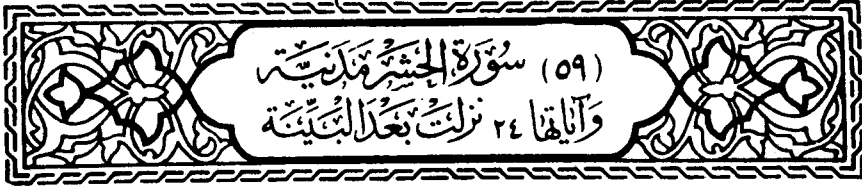 (٥٩) سُورَة الحَشْر مَدَنيَّة
وَآيَاتهَا ٢٤ نَزَلَتْ بَعْدَ البَيِّنَة